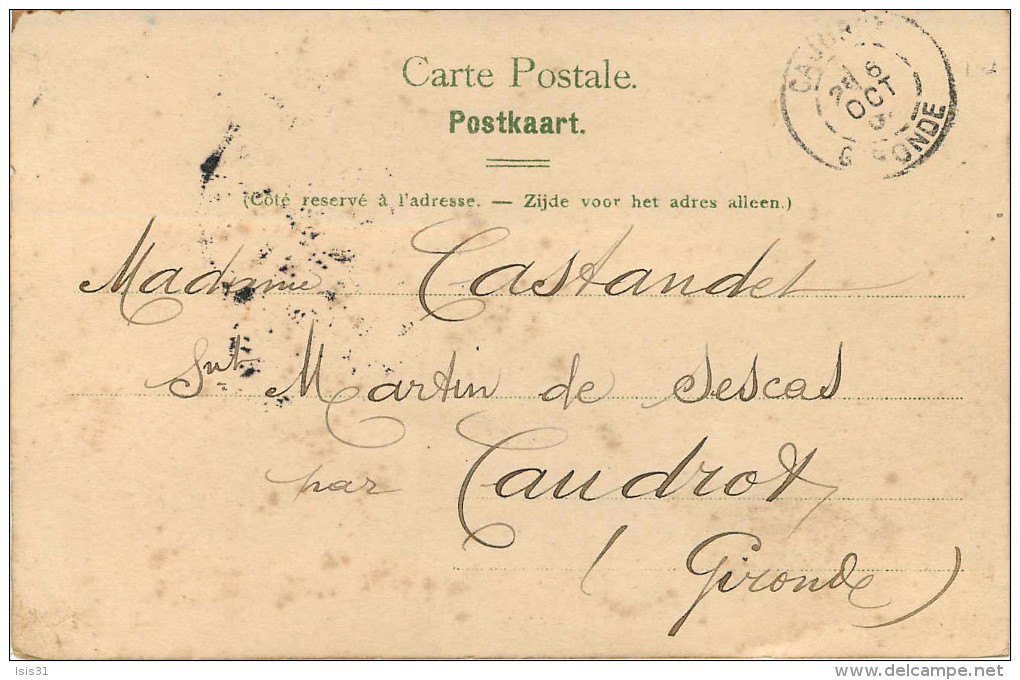 Carte Postale.
Postkaart.
(Côté reservé à l'adresse. — Zijde voor het adres alleen.)
6
OCT
03
Madame Castandet
Snt Martin de Sescas
par Caudrot
(Gironde)
Isis31
www.delcampe.net